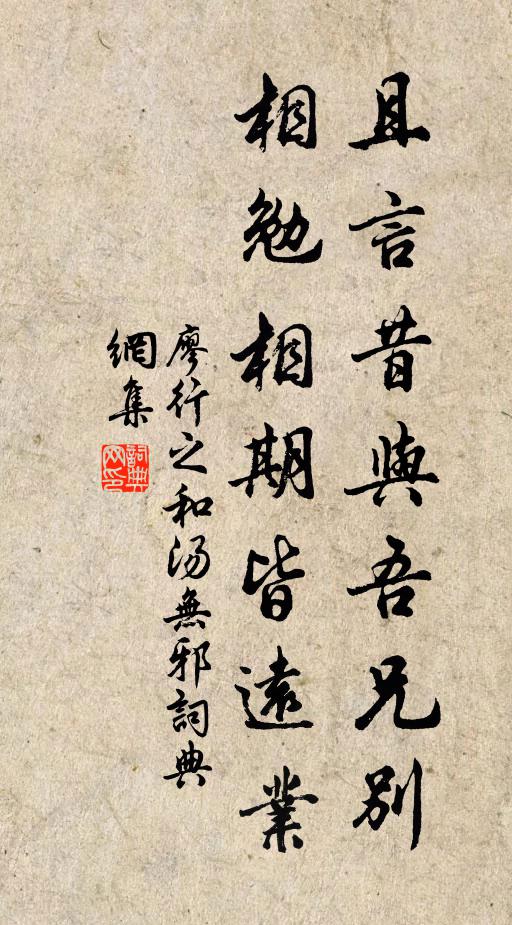 且言昔與吾兄別
相勉相期皆遠業
廖行之和湯無邪詞典
網集
詞典網印